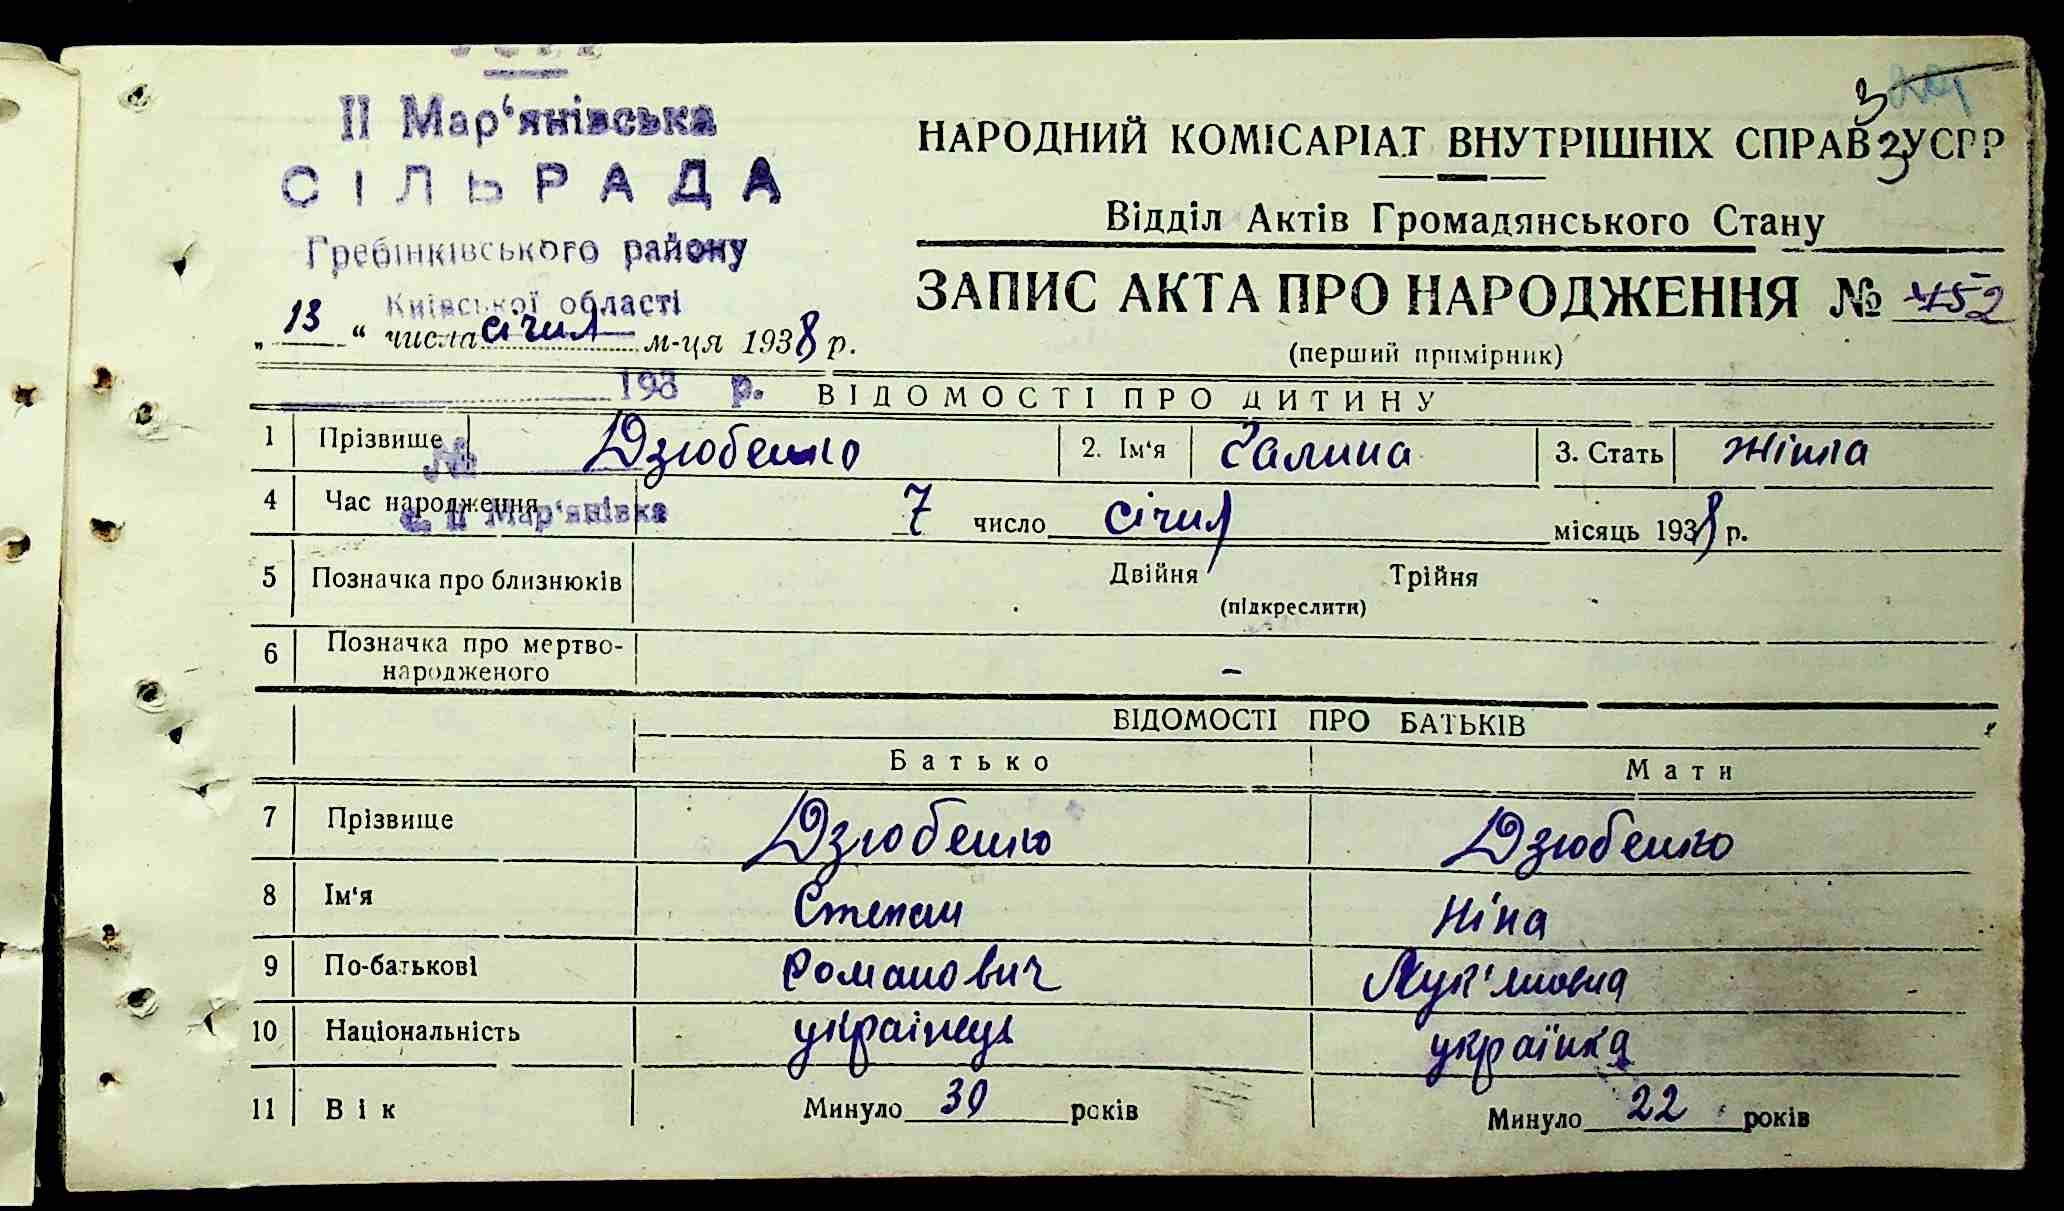 УСРР
II Мар‘янівська
СІЛЬРАДА
Гребінківського району
Київської області
„13“ числа січня м-ця 1938 р.
193 р.
№
с. II Мар‘янівка
3
33
НАРОДНИЙ КОМІСАРІАТ ВНУТРІШНІХ СПРАВ УСРР
Відділ Актів Громадянського Стану
ЗАПИС АКТА ПРО НАРОДЖЕННЯ № 2
(перший примірник)
ВІДОМОСТІ ПРО ДИТИНУ
1 Прізвище Дзюбенко 2. Ім‘я Галина 3. Стать жіноча
4 Час народження 7 число січня місяць 1938 р.
5 Позначка про близнюків Двійня Трійня
(підкреслити)
6 Позначка про мертво-
народженого –
ВІДОМОСТІ ПРО БАТЬКІВ
Батько Мати
7 Прізвище Дзюбенко Дзюбенко
8 Ім‘я Степан Ніна
9 По-батькові Романович Лук‘яновна
10 Національність українець українка
11 Вік Минуло 30 років Минуло 22 років